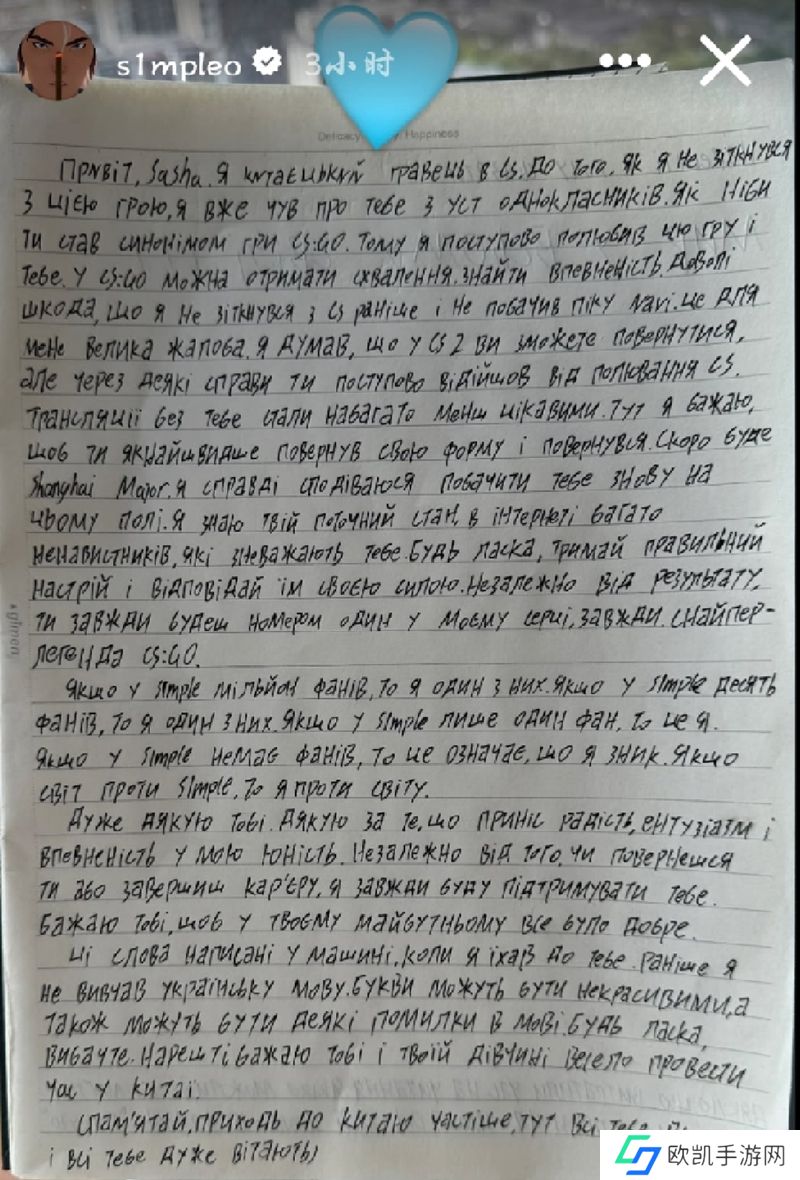 s1mpleo 3小时
Delicacy Happiness
Привіт, Sasha. Я китаєцький гравець в CS. До того, як я не зіткнувся
з цією грою, я вже чув про тебе з уст однокласників. Як ніби
ти став синонімом гри CS:GO. Тому я поступово полюбив цю гру і
тебе. У CS:GO можна отримати схвалення. знайти впевненість. Доволі
шкода, що я не зіткнувся з CS раніше і не побачив піку Navi. це для
мене велика жалоба. Я думав, що у CS 2 ви зможете повернутися,
але через деякі справи ти поступово відійшов від полювання CS.
Трансляції без тебе стали набагато менш цікавими. Тут я бажаю,
щоб ти якнайшвидше повернув свою форму і повернувся. Скоро буде
Shanghai Major. Я справді сподіваюся побачити тебе знову на
цьому полі. Я знаю твій поточний стан, в інтернеті багато
ненависників, які зневажають тебе. Будь ласка, тримай правильний
настрій і відповідай їм своєю силою. Незалежно від результату,
ти завжди будеш номером один у моєму серці, завжди. Снайпер-
легенда CS:GO.
Якщо у s1mple мільйон фанів, то я один з них. Якщо у s1mple десять
фанів, то я один з них. Якщо у s1mple лише один фан, то це я.
Якщо у s1mple немає фанів, то це означає, що я зник. Якщо
світ проти s1mple, то я проти світу.
Дуже дякую тобі. Дякую за те, що приніс радість, ентузіазм і
впевненість у мою юність. Незалежно від того, чи повернешся
ти або завершиш кар'єру, я завжди буду підтримувати тебе.
Бажаю тобі, щоб у твоєму майбутньому все було добре.
Ці слова написані у машині, коли я їхав до тебе. Раніше я
не вивчав українську мову. Букви можуть бути некрасивими, а
також можуть бути деякі помилки в мові. Будь ласка,
вибачте. Нарешті, бажаю тобі і твоїй дівчині весело провести
час у Китаї.
Спам'ятай, приходь до Китаю частіше, тут всі тебе
і всі тебе дуже вітають)
欧凯手游网